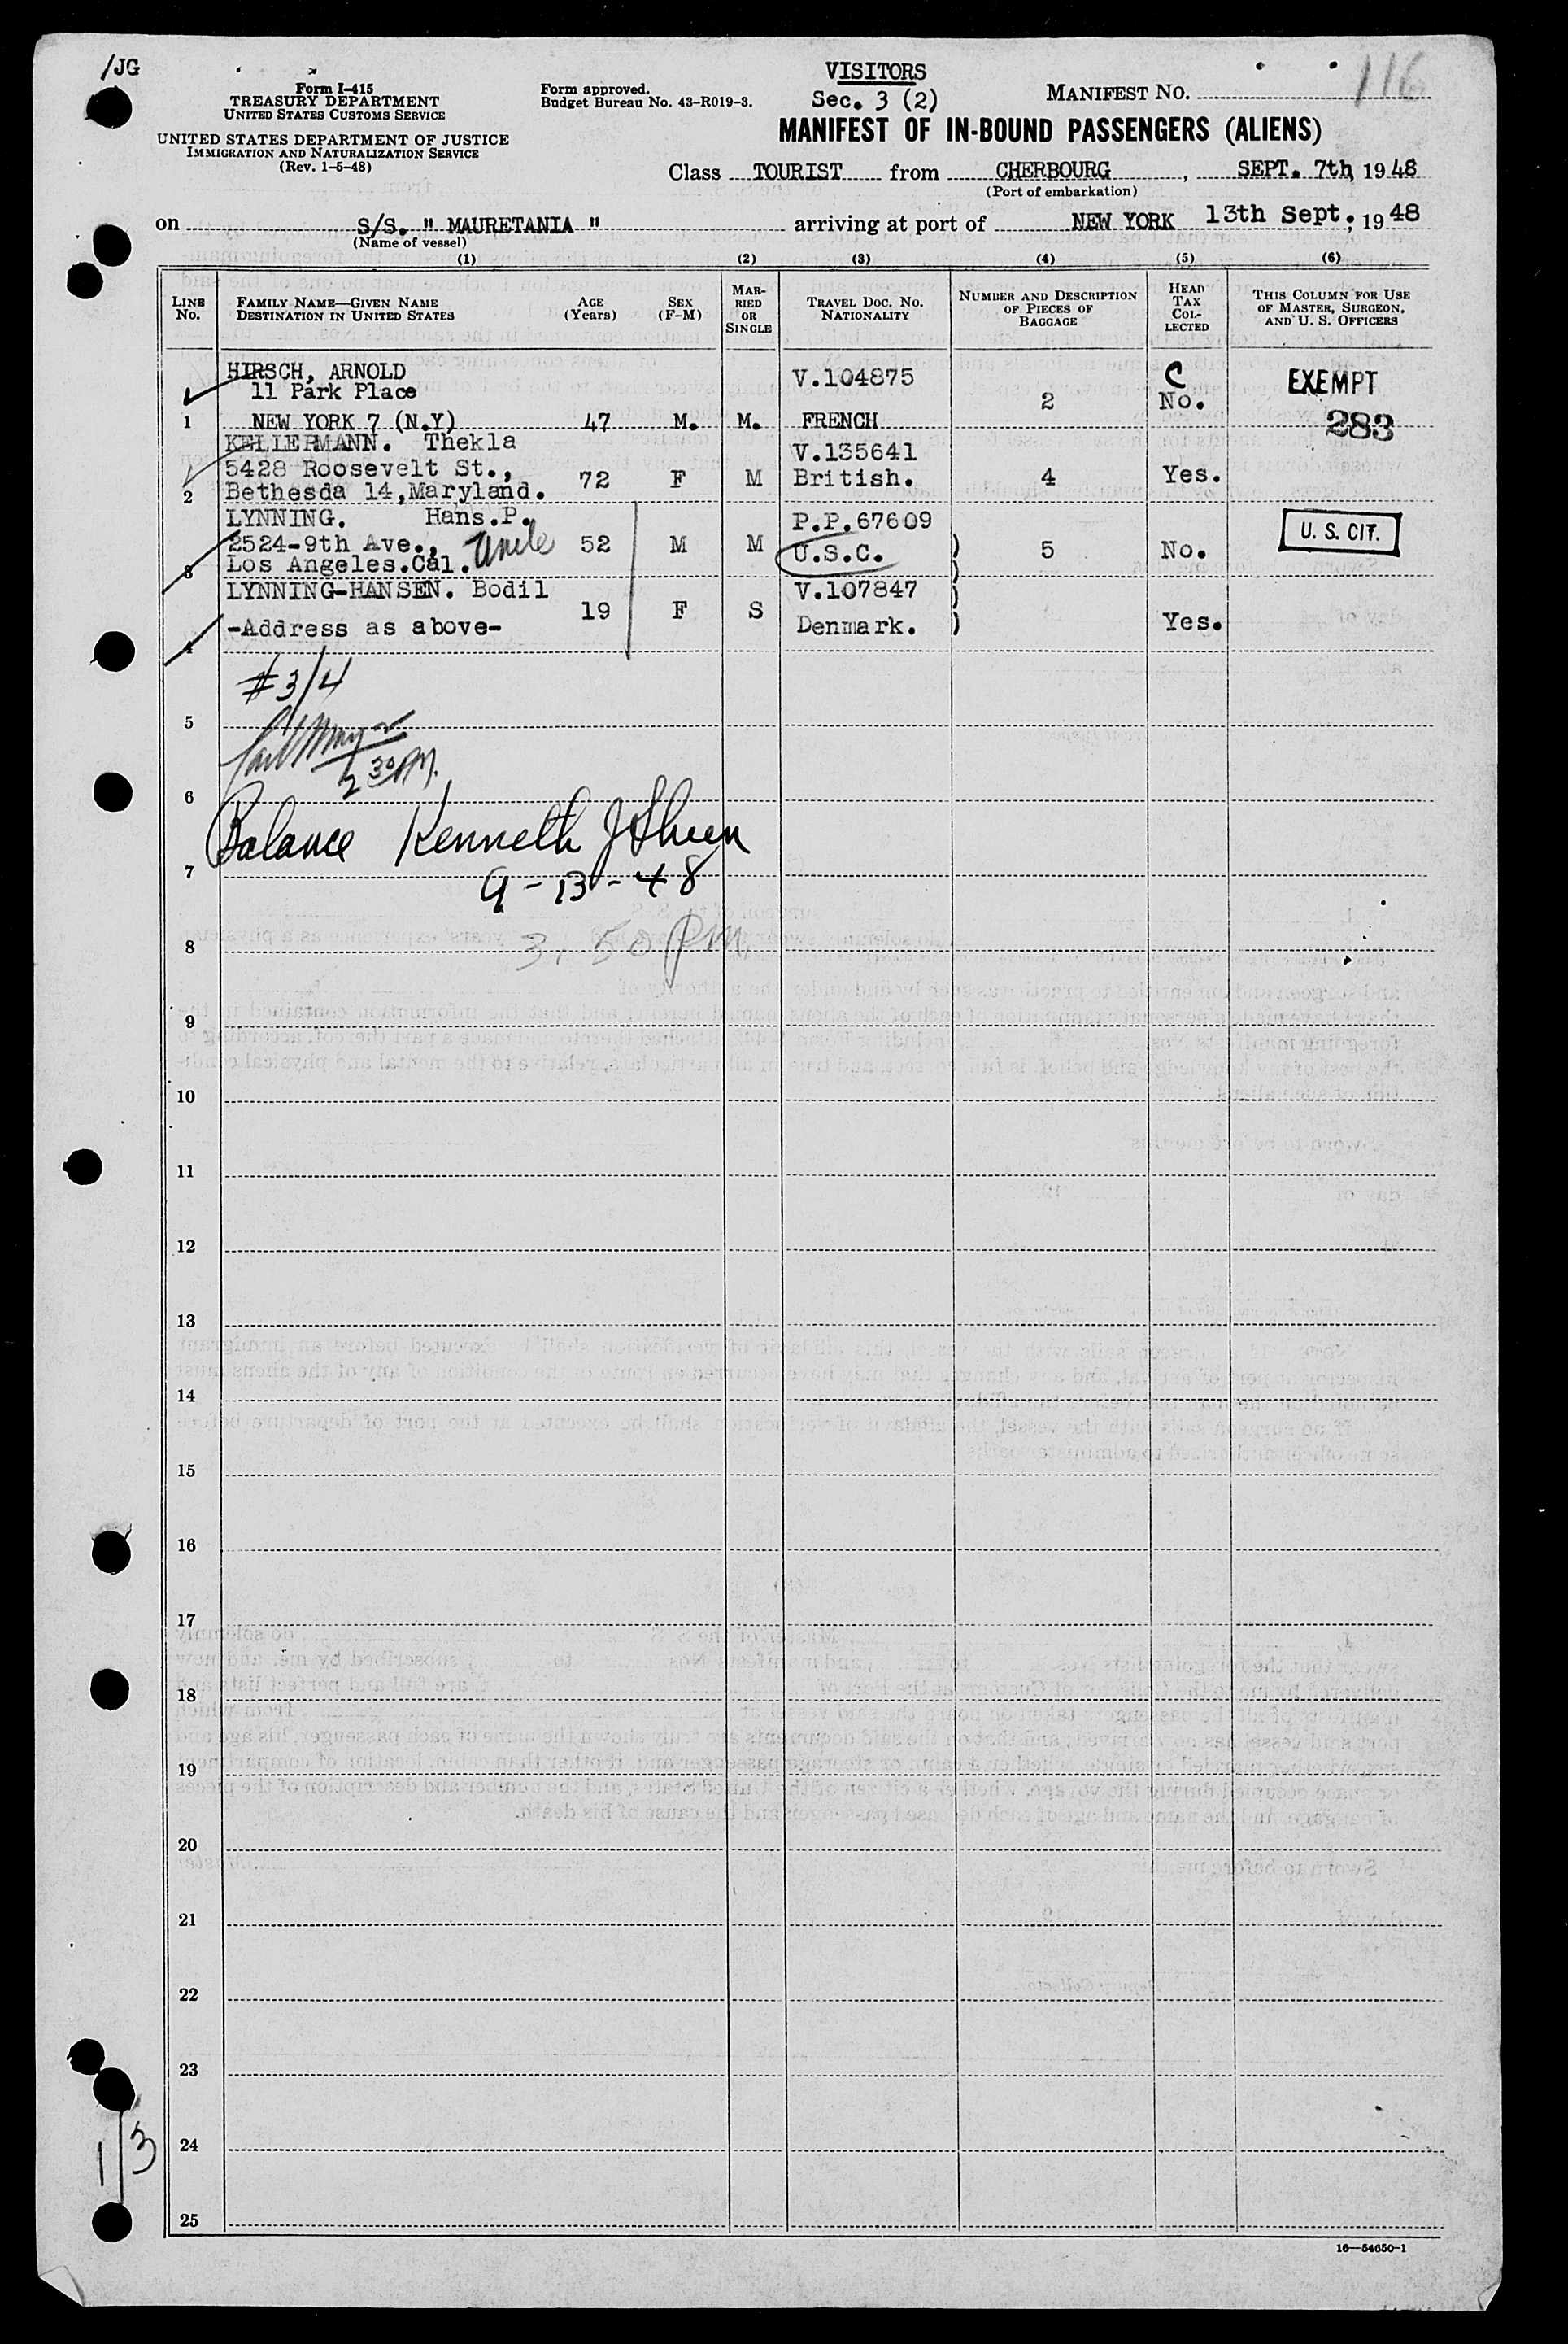 /JG
VISITORS
Sec. 3 (2)
116
Form I-415
TREASURY DEPARTMENT
UNITED STATES CUSTOMS SERVICE
UNITED STATES DEPARTMENT OF JUSTICE
IMMIGRATION AND NATURALIZATION SERVICE
(Rev. 1-5-48)
Form approved.
Budget Bureau No. 43-R019-3.
MANIFEST NO.
MANIFEST OF IN-BOUND PASSENGERS (ALIENS)
Class TOURIST from CHERBOURG, SEPT. 7th, 1948
(Port of embarkation)
on S/S. " MAURETANIA " arriving at port of NEW YORK 13th Sept., 1948
(Name of vessel)
(1) (2) (3) (4) (5) (6)
LINE No.
FAMILY NAME—GIVEN NAME
DESTINATION IN UNITED STATES
AGE (Years)
SEX (F-M)
MARRIED OR SINGLE
TRAVEL DOC. NO. NATIONALITY
NUMBER AND DESCRIPTION OF PIECES OF BAGGAGE
HEAD TAX COLLECTED
THIS COLUMN FOR USE OF MASTER, SURGEON, AND U. S. OFFICERS
HIRSCH, ARNOLD V.104875 C EXEMPT
11 Park Place 2 No.
1 NEW YORK 7 (N.Y) 47 M. M. FRENCH 283
KELLERMANN. Thekla V.135641
5428 Roosevelt St., 72 F M British. 4 Yes.
2 Bethesda 14,Maryland.
LYNNING. Hans.P. P.P.67609 U. S. CIT.
2524-9th Ave., Uncle 52 M M U.S.C. ) 5 No.
3 Los Angeles.Cal. )
LYNNING-HANSEN. Bodil 19 F S V.107847 )
4 -Address as above- Denmark. ) Yes.
#3/4
5
2 30 PM.
6
Balance Kenneth J Sheen
7
9-13-48
8
3.50 PM
9
10
11
12
13
14
15
16
17
18
19
20
21
22
23
24
1/3
25
16—54650-1